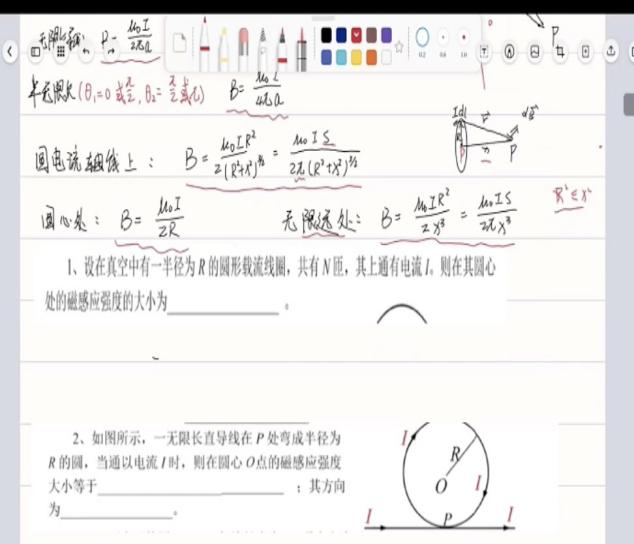 无限长载流: B = μ₀I/2πa
半无限长 (θ₁=0 或 π/2, θ₂= π/2 或 π) B = μ₀I/4πa
圆电流轴线上: B = μ₀IR²/2(R²+x²)^{3/2} = μ₀IS/2π(R²+x²)^{3/2}
Idl r dB R x P
圆心处: B = μ₀I/2R 无限远处: B = μ₀IR²/2x³ = μ₀IS/2πx³ R² ≤ x²
1、设在真空中有一半径为 R 的圆形载流线圈，共有 N 匝，其上通有电流 I。则在其圆心
处的磁感应强度的大小为____________。
2、如图所示，一无限长直导线在 P 处弯成半径为
R 的圆，当通以电流 I 时，则在圆心 O 点的磁感应强度
大小等于____________________；其方向
为____________。
I R O I
I P I